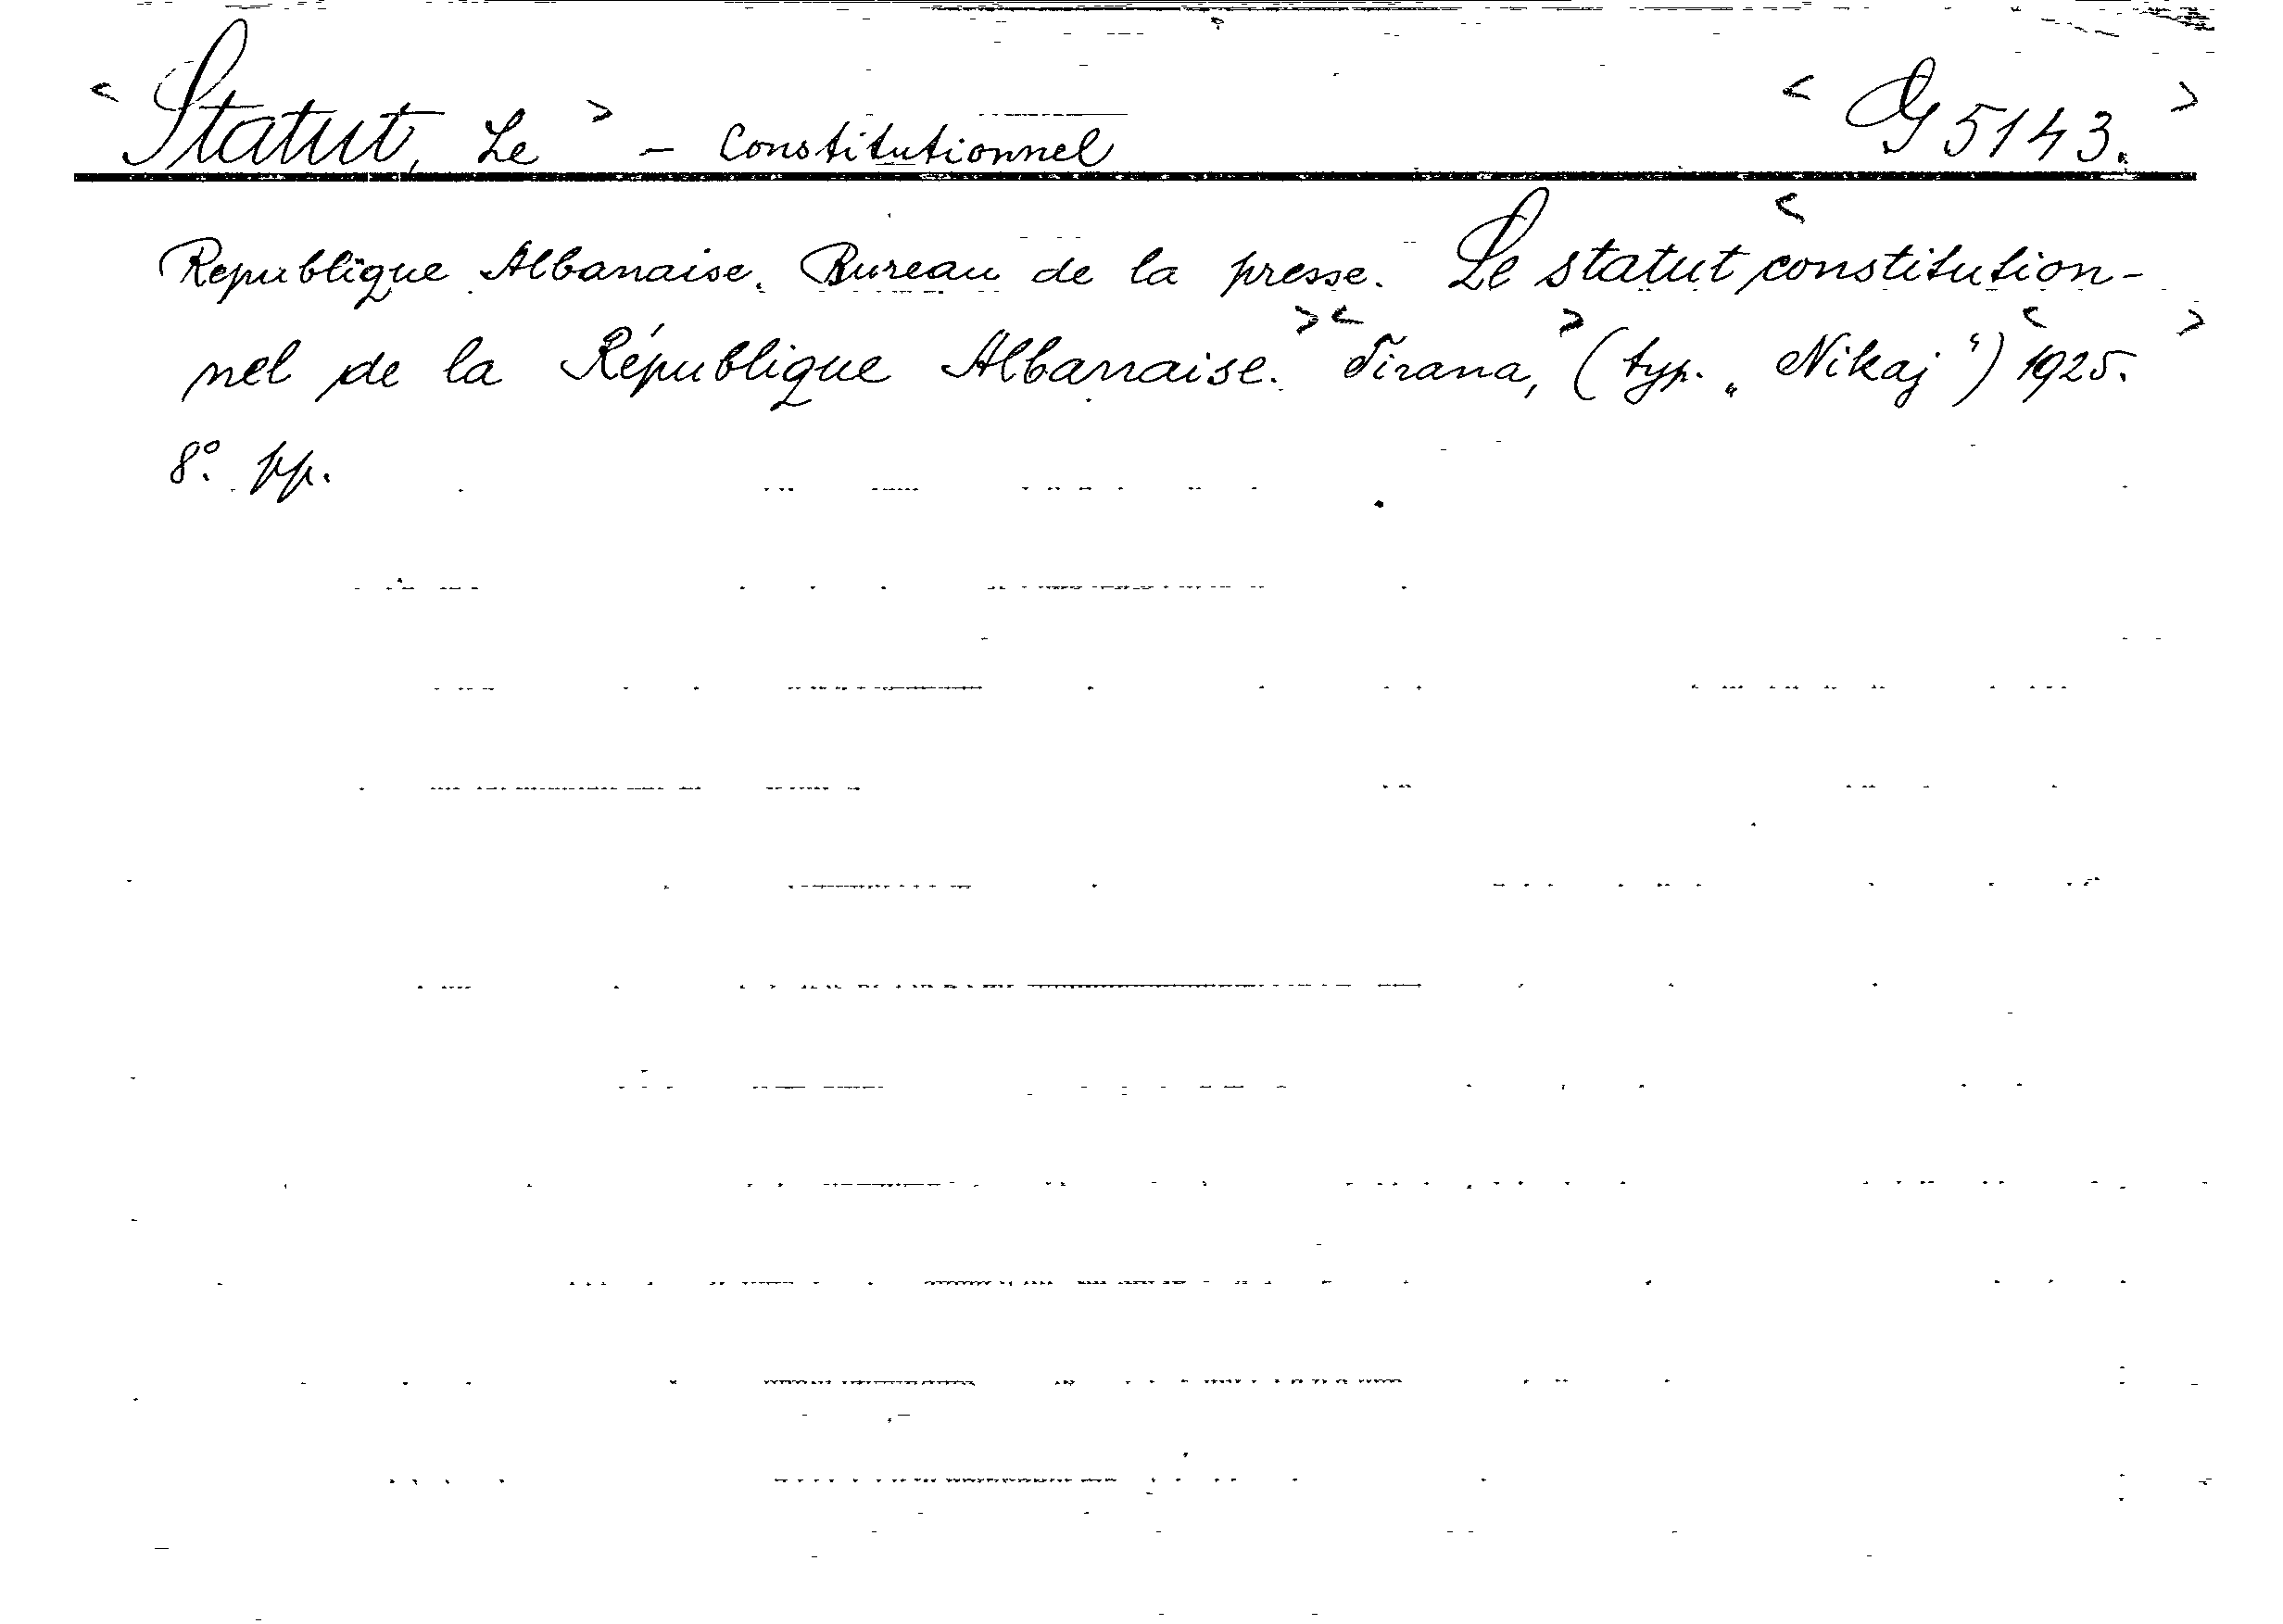 < Statut, Le > – Constitutionnel < G 5143. >
Republique Albanaise. Bureau de la presse. Le statut < constitution-
nel de la République Albanaise. > < Tirana, > (typ. „Nikaj“) < 1925. >
8° pp.